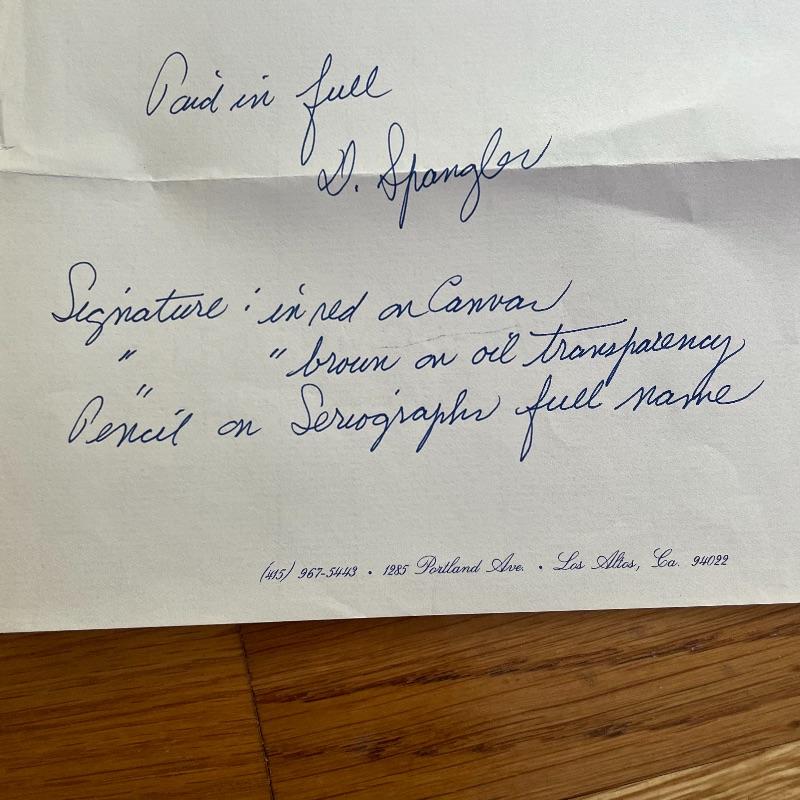 Paid in full
D. Spangler
Signature : in red on Canvas
" " brown on oil transparency
"
Pencil on Seriographs full name
(415) 967-5443 • 1285 Portland Ave. • Los Altos, Ca. 94022